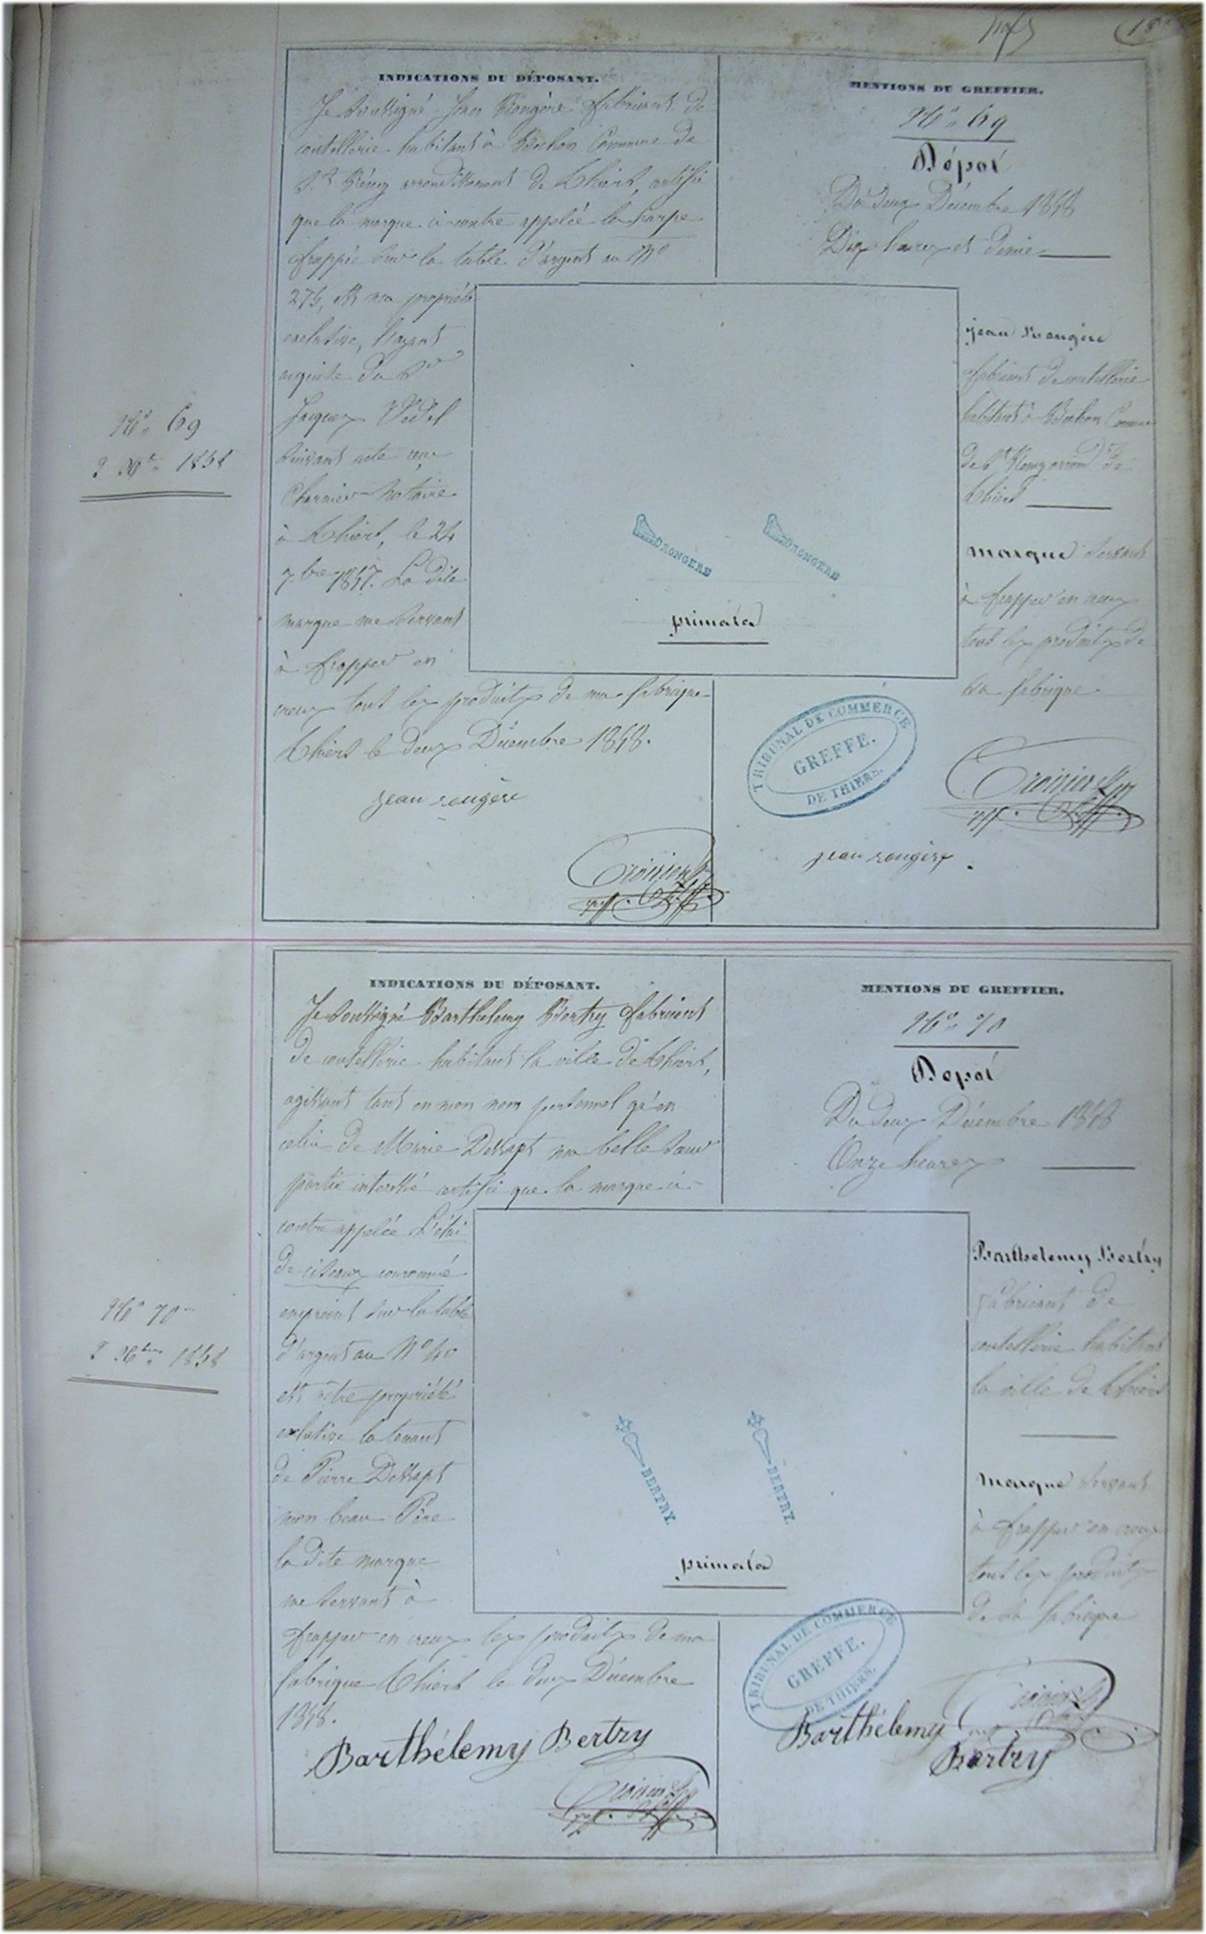 INDICATIONS DU DÉPOSANT.
Je soussigné Jean Rongère fabricant de
coutellerie habitant à Bechon Commune de
St Rémy arrondissement de Thiers, certifie
que la marque ci-contre appelée la harpe
frappée sur la table d'argent au No
274, est ma propriété
exclusive, l'ayant
acquise du Sr
Jacques Vedel
suivant acte reçu
Charnier Notaire
à Thiers, le 24
7bre 1857. La dite
marque me servant
à frapper en
creux tout les produits de ma fabrique
Thiers le deux Décembre 1858.
jean rongère
MENTIONS DU GREFFIER.
No 69
Dépot
Du deux Décembre 1858
Dix heures et demie
jean Rongère
fabricant de coutellerie
habitant à Bechon Commune
de St Remy arrond. de
Thiers
marque servant
à frapper en creux
tout les produits de
sa fabrique
DRONGÈRE
DRONGÈRE
primata
TRIBUNAL DE COMMERCE
GREFFE.
DE THIERS.
jean rongère
No 69
2 Xbre 1858
INDICATIONS DU DÉPOSANT.
Je soussigné Barthelemy Bertry fabricant
de coutellerie habitant la ville de Thiers,
agissant tant en mon nom personnel qu'en
celui de Marie Dessapt ma belle sœur
partie interessé certifie que la marque ci-
contre appelée L'étui
de ciseaux couronné
empreint sur la table
d'argent au No 40
est nôtre propriété
exclusive la tenant
de Pierre Dessapt
mon beau Père
la dite marque
me servant à
frapper en creux les produits de ma
fabrique Thiers le deux Décembre
1858.
Barthélemy Bertry
MENTIONS DU GREFFIER.
No 70
Dépot
Du deux Décembre 1858
Onze heures
Barthelemy Bertry
Fabricant de
coutellerie habitant
la ville de Thiers
marque servant
à frapper en creux
tout les produits
de sa fabrique
BERTRY.
BERTRY.
primata
TRIBUNAL DE COMMERCE
GREFFE.
DE THIERS.
Barthélemy
Bertry
No 70
2 Xbre 1858